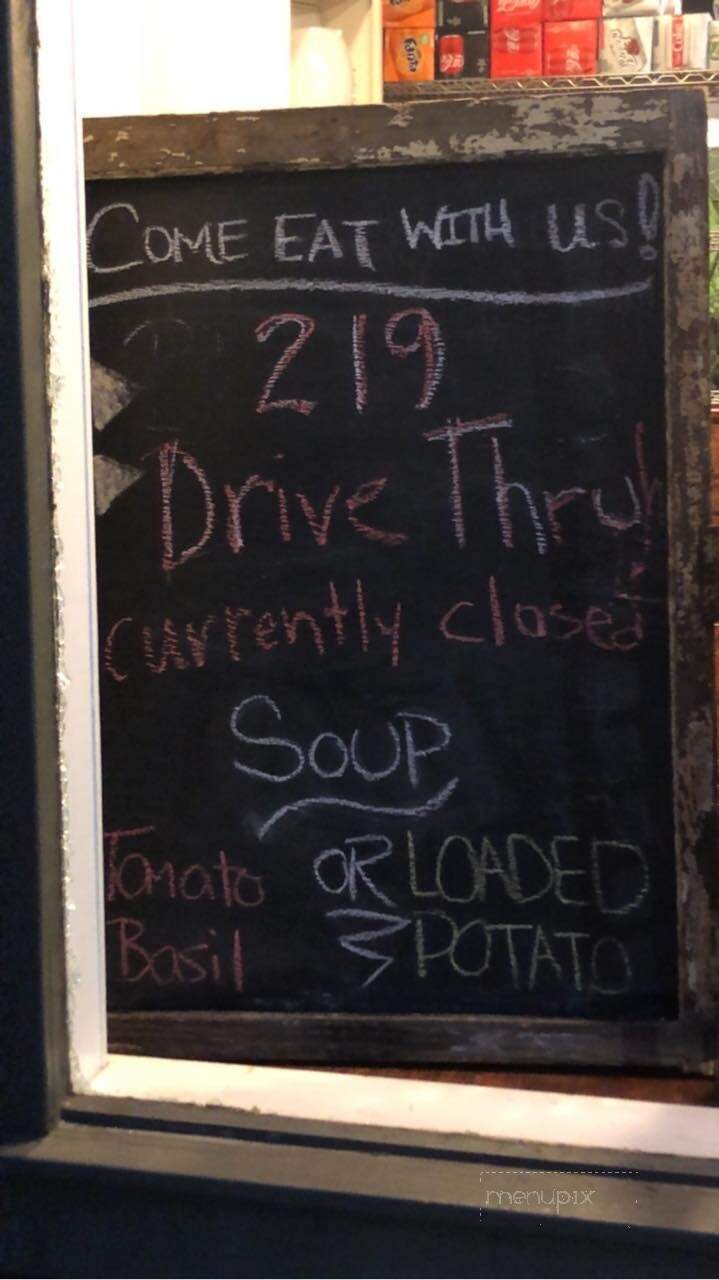 COME EAT WITH US!
219
Drive Thru
currently closed
SOUP
Tomato OR LOADED
Basil POTATO
menupix